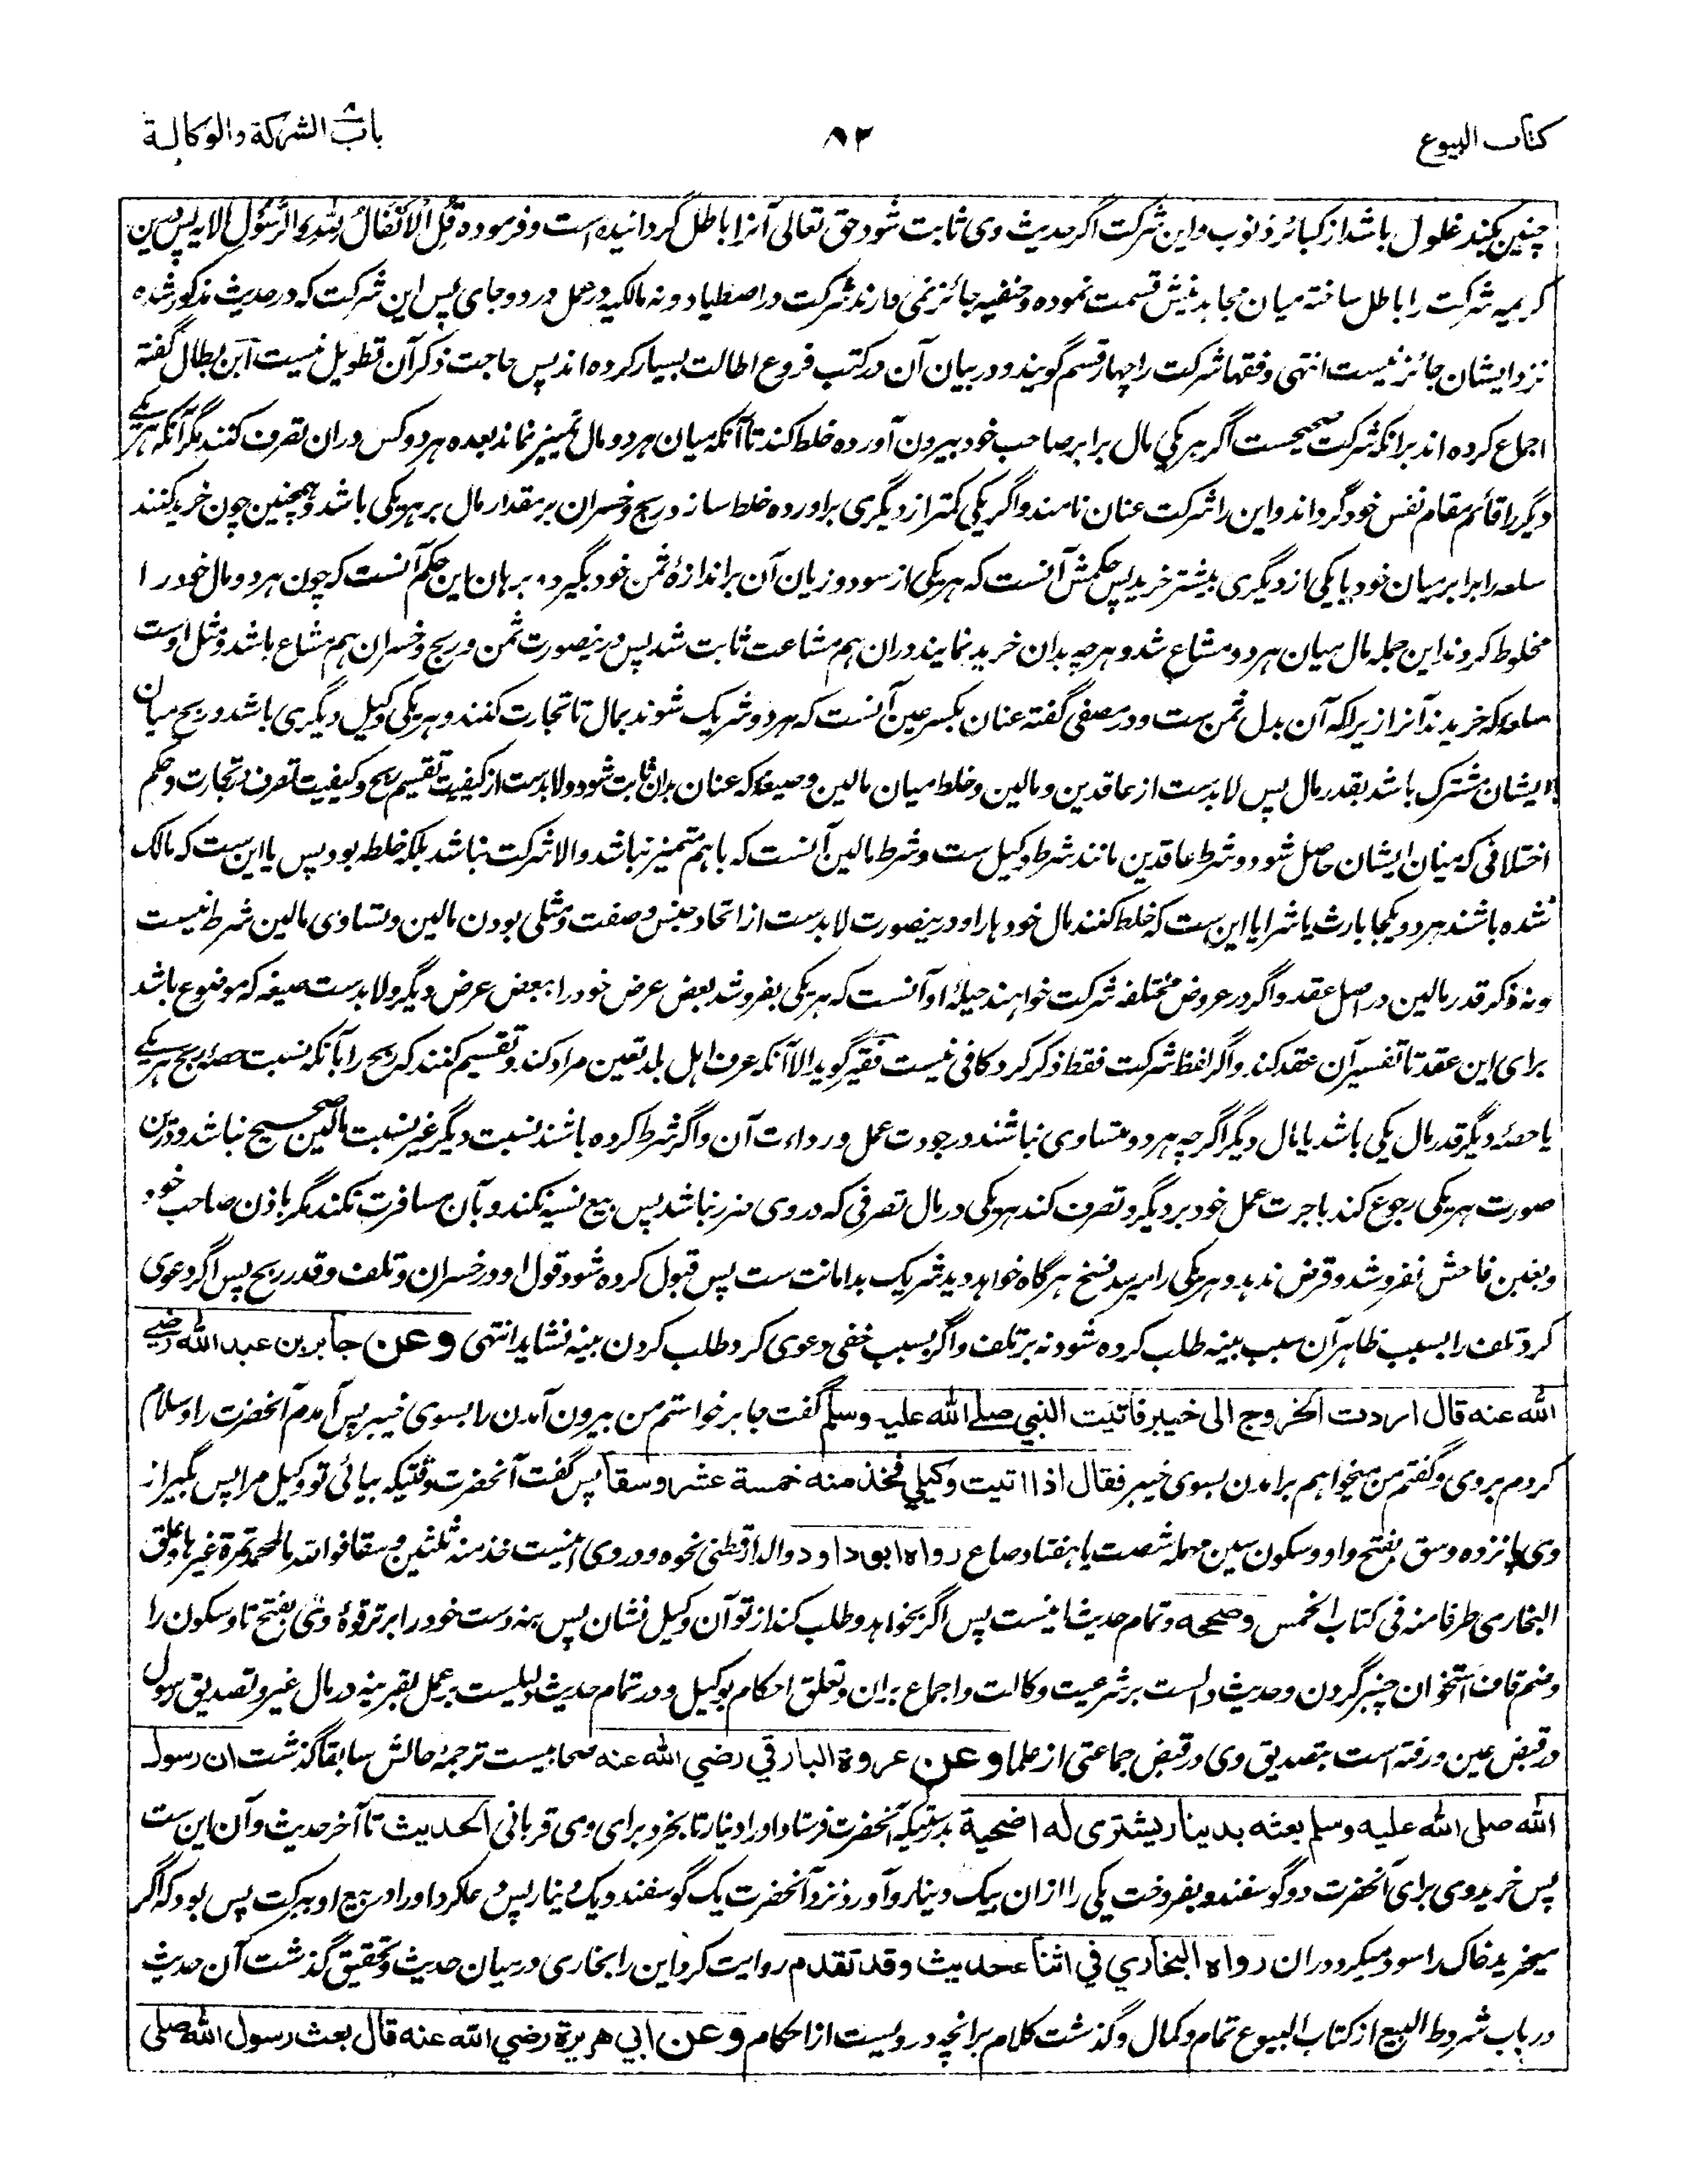 کتاب البیوع
۸۳
باب الشرکة والوکالة
چنین بکند غلول باشد از کبائر ذنوب و این شرکت اگر حدیث وی ثابت شود حق تعالی آنرا باطل گردانیده است و فرموده قُلِ الْاَنْفَالُ لِلّٰهِ وَالرَّسُوْلِ الایه پس این
کریمه شرکت را باطل ساخته میان مجاهدینش قسمت نموده و حنفیه جائز نمی دارند شرکت در اصطیاد و نه مالکیه در عمل در دو جای پس این شرکت که در حدیث مذکور شده
نزد ایشان جائز نیست انتهی و فقها شرکت را چهار قسم گویند و در بیان آن در کتب فروع اطالت بسیار کرده اند پس حاجت ذکر آن تطویل نیست ابن بطال گفته
اجماع کرده اند برانکه شرکت صحیحست اگر هر یکی مال برابر صاحب خود بیرون آورده خلط کند تا آنکه میان هر دو مال تمییز نماند بعده هر دو کس دران تصرف کنند مگر آنکه هر یکے
دیگر را قائم مقام نفس خود گرداند و این را شرکت عنان نامند و اگر یکی کمتر از دیگری برآورده خلط سازد ربح و خسران بر مقدار مال بر هر یکی باشد و همچنین چون خرید کنند
سلعه را برابر میان خود یا یکی از دیگری بیشتر خرید پس حکمش آنست که هر یکی از سود و زیان آن بر اندازهٔ ثمن خود بگیرد و برهان این حکم آنست که چون هر دو مال خود را
مخلوط کردند این جمله مال میان هر دو مشاع شد و هر چه بدان خرید نمایند دران هم مشاعت ثابت شد پس درینصورت ثمن و ربح و خسران هم مشاع باشد و مثل اوست
سلعه که خریدند آنرا زیراکه آن بدل ثمن ست و در مصفی گفته عنان بکسر عین آنست که هر دو شریک شوند بمال تا تجارت کنند و هر یکی وکیل دیگری باشد و ربح میان
ایشان مشترک باشد بقدر مال پس لا بدست از عاقدین و مالین و خلط میان مالین و صیغه که عنان بدان ثابت شود و لا بدست از کیفیت تقسیم ربح و کیفیت تصرف در تجارت و حکم
اختلافی که میان ایشان حاصل شود و شرط عاقدین مانند شرط وکیل ست و شرط مالین آنست که با هم متمیز نباشد والا شرکت نباشد بلکه خلطه بود پس یا این ست که مالک
شده باشند هر دو یکجا بارث یا شرا یا این ست که خلط کنند مال خود ها را و درینصورت لا بدست از اتحاد جنس و صفت و مثلی بودن مالین و تساوی مالین شرط نیست
و نه ذکر قدر مالین در اصل عقد و اگر در عروض مختلفه شرکت خواهند حیلهٔ او آنست که هر یکی بفروشد بعض عرض خود را ببعض عرض دیگر و لا بدست صیغه که موضوع باشد
برای این عقد تا تفسیر آن عقد کند و اگر لفظ شرکت فقط ذکر کرد کافی نیست فقیر گوید الا آنکه عرف اهل بلد تعین مراد کند و تقسیم کنند که ربح را بآنکه نسبت حصهٔ ربح هر یکے
یا حصهٔ دیگر قدر مال یکی باشد یا مال دیگر اگر چه هر دو متساوی نباشند در جودت عمل و رداءت آن و اگر شرط کرده باشند نسبت دیگر غیر نسبت مالین صحیح نباشد و درین
صورت هر یکی رجوع کند باجرت عمل خود بر دیگر و تصرف کند هر یکی در مال تصرفی که در وی ضرر نباشد پس بیع نسیه نکند و بآن مسافرت نکند مگر باذن صاحب خود
و بغبن فاحش نفروشد و قرض ندهد و هر یکی را میرسد فسخ هر گاه خواهد و ید شریک ید امانت ست پس قبول کرده شود قول او در خسران و تلف و قدر ربح پس اگر دعوی
کرد تلف را بسبب ظاهر آن سبب بینه طلب کرده شود نه بر تلف و اگر بسبب خفی دعوی کرد طلب کردن بینه نشاید انتهی وعن جابر بن عبد الله رضے
الله عنه قال اردت الخروج الی خیبر فاتیت النبي صلے الله علیه وسلم گفت جابر خواستم من بیرون آمدن را بسوی خیبر پس آمدم آنحضرت را و سلام
کردم بر وی و گفتم من میخواهم برآمدن بسوی خیبر فقال اذا اتیت وکیلي فخذ منه خمسة عشر وسقا پس گفت آنحضرت وقتیکه بیائی تو وکیل مرا پس بگیر از
وی پانزده وسق بفتح واو و سکون سین مهمله شصت یا هفتاد صاع رواه ابو داود والدارقطنی نحوه و در وی اینست خذ منه ثلثین وسقا فوالله ما لمحمد تمرة غیرها و علق
البخاری طرفا منه فی کتاب الخمس وصححه و تمام حدیث اینست پس اگر بخواهد و طلب کند از تو آن وکیل نشان پس بنه دست خود را بر ترقوهٔ وی بفتح تا و سکون را
و ضم قاف استخوان چنبر گردن و حدیث دالست بر شرعیت وکالت و اجماع بران و تعلق احکام بوکیل و در تمام حدیث دلیلست بر عمل بقرینه در مال غیر و تصدیق رسول
در قبض عین و رفته است بتصدیق وی در قبض جماعتی از علما وعن عروة البارقي رضي الله عنه صحابیست ترجمهٔ حالش سابقا گذشت ان رسول
الله صلی الله علیه وسلم بعثه بدینار یشتری له اضحیة بدرستیکه آنحضرت فرستاد او را دینار تا بخرد برای وی قربانی الحدیث تا آخر حدیث و آن این ست
پس خرید وی برای آنحضرت دو گوسفند و بفروخت یکی را ازان بیک دینار و آورد نزد آنحضرت یک گوسفند و یک دینار پس دعا کرد او را در بیع او ببرکت پس بود که اگر
میخرید خاک را سود میکرد دران رواه البخاري في اثناء حدیث وقد تقدم روایت کرد این را بخاری در میان حدیث و تحقیق گذشت آن حدیث
در باب شروط البیع از کتاب البیوع تمام و کمال و گذشت کلام برانچه درویست از احکام وعن ابي هریرة رضي الله عنه قال بعث رسول الله صلی